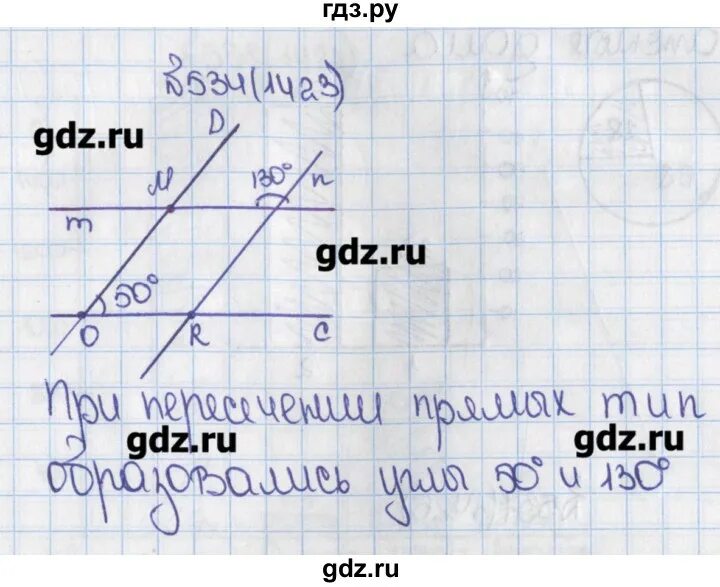 гдз.ру
№534(1423)
D
gdz.ru
M
130°
n
m
gdz.ru
50°
O
R
C
При пересечении прямых m и n
gdz.ru
gdz.ru
образовались углы 50° и 130°
gdz.ru